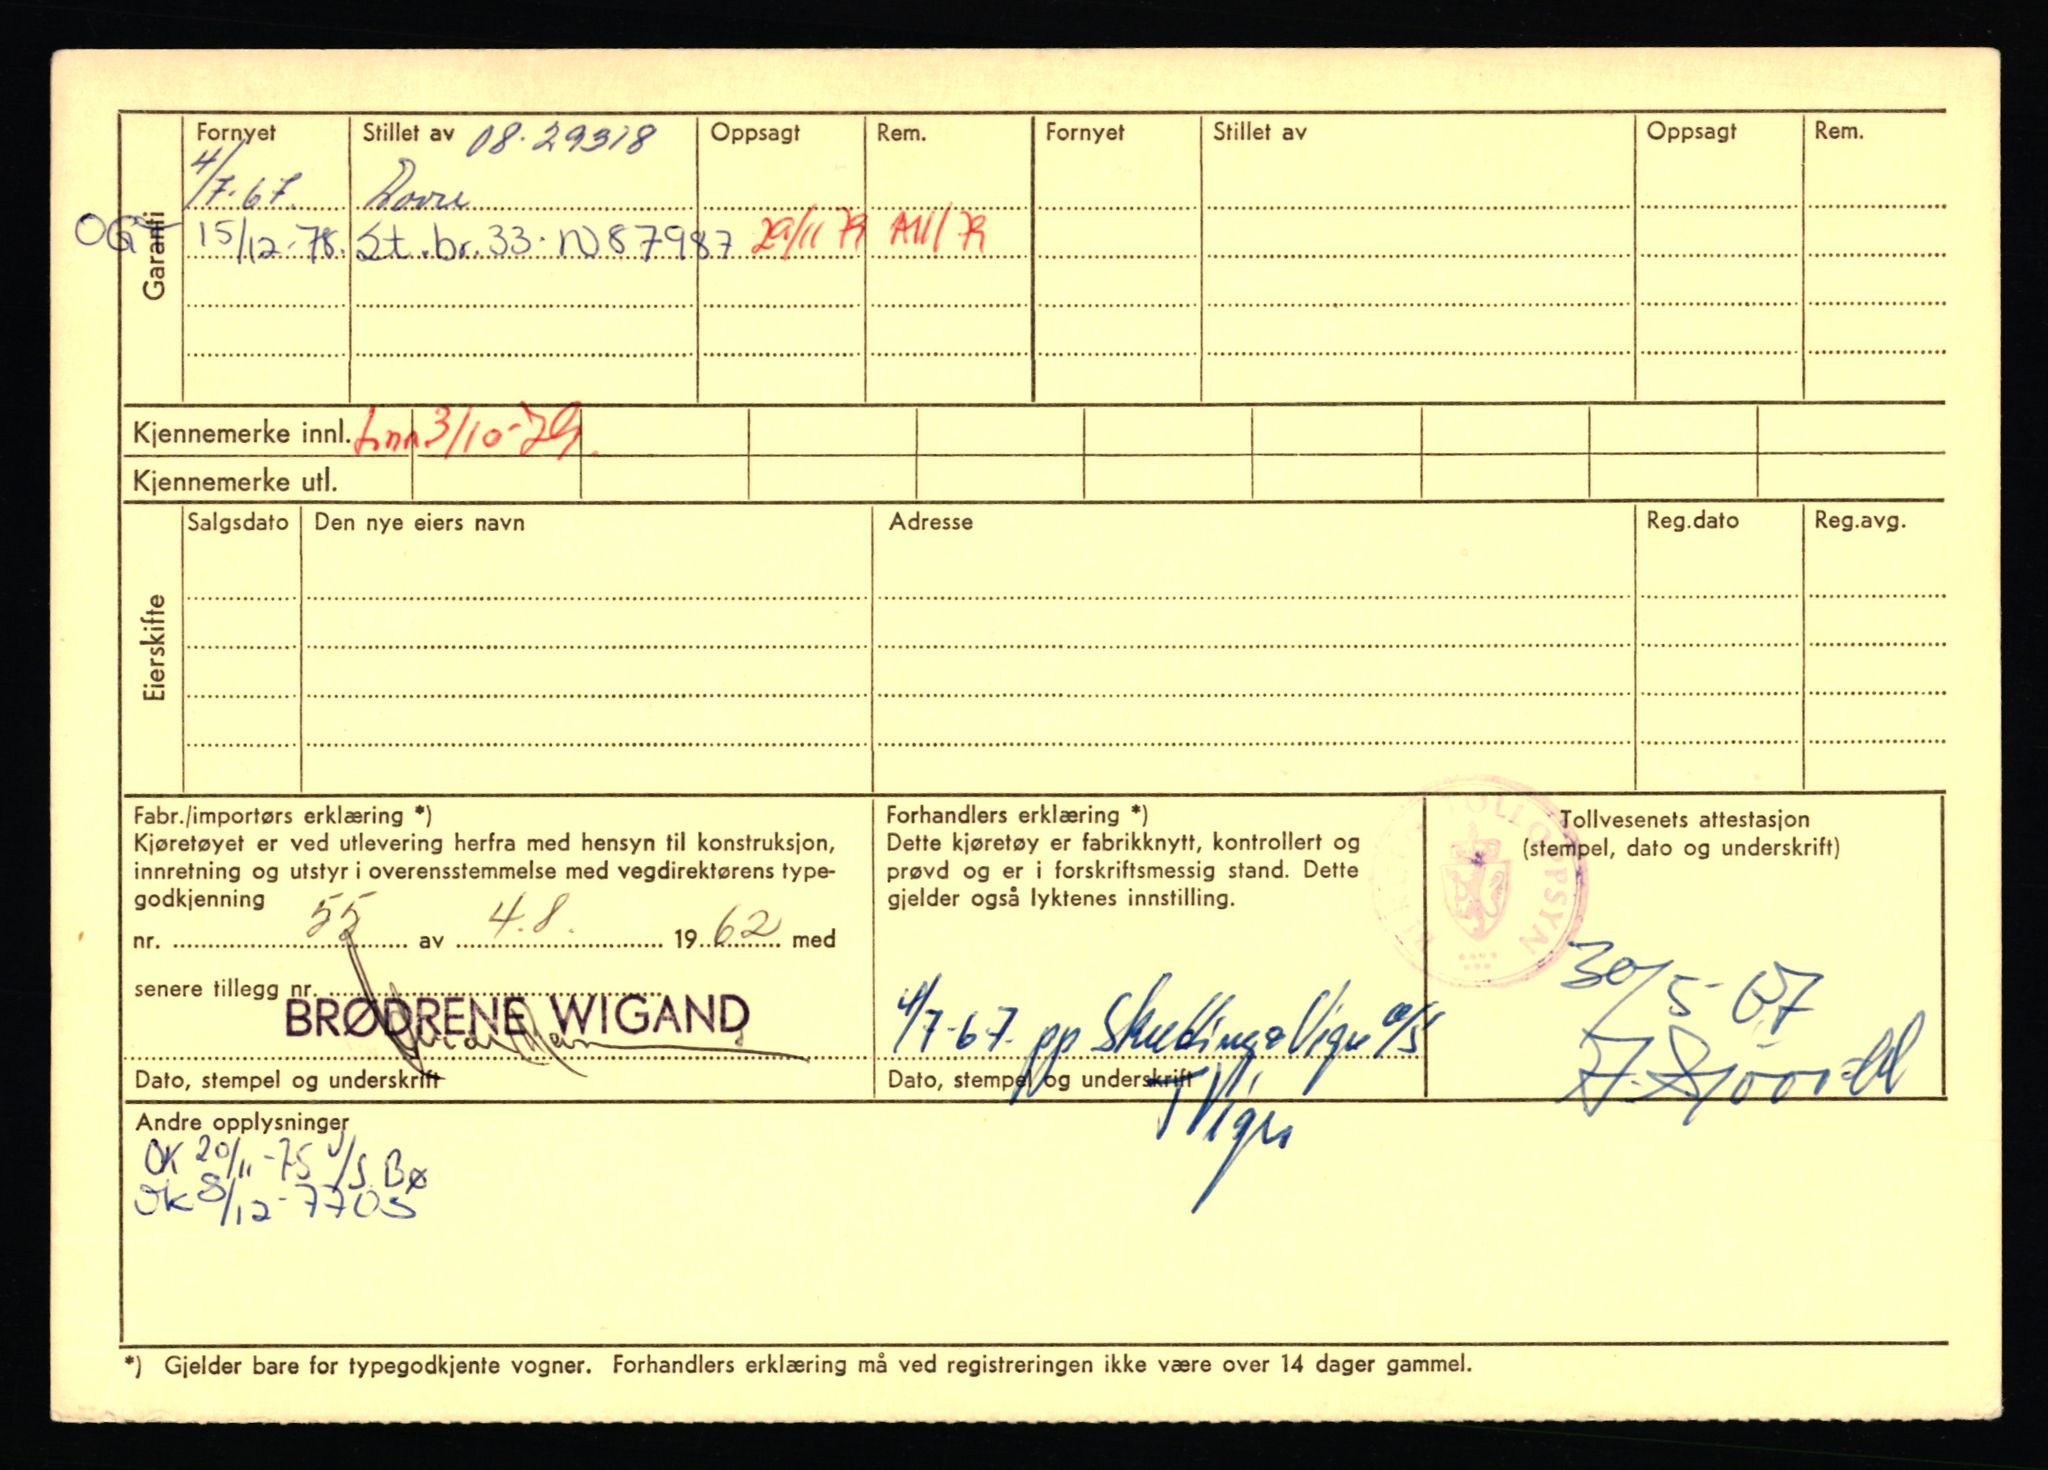 Garanti
Fornyet Stillet av 08.29318 Oppsagt Rem. Fornyet Stillet av Oppsagt Rem.
4/7.67. Dovre
OG 15/12-78. St.br.33. N 87987 29/11 79
Kjennemerke innl. Inn 3/10-79.
Kjennemerke utl.
Eierskifte
Salgsdato Den nye eiers navn Adresse Reg.dato Reg.avg.
Fabr./importørs erklæring *)
Kjøretøyet er ved utlevering herfra med hensyn til konstruksjon,
innretning og utstyr i overensstemmelse med vegdirektørens type-
godkjenning
nr. 55 av 4.8. 1962 med
senere tillegg nr.
BRØDRENE WIGAND
Dato, stempel og underskrift
Forhandlers erklæring *)
Dette kjøretøy er fabrikknytt, kontrollert og
prøvd og er i forskriftsmessig stand. Dette
gjelder også lyktenes innstilling.
4/7-67. pp Vigre a/s
Dato, stempel og underskrift
T Vigre
TOLLOPPSYN
Tollvesenets attestasjon
(stempel, dato og underskrift)
30/5-67
Andre opplysninger
OK 20/11-75 J/S. Bø
OK 8/12-77 OS
*) Gjelder bare for typegodkjente vogner. Forhandlers erklæring må ved registreringen ikke være over 14 dager gammel.